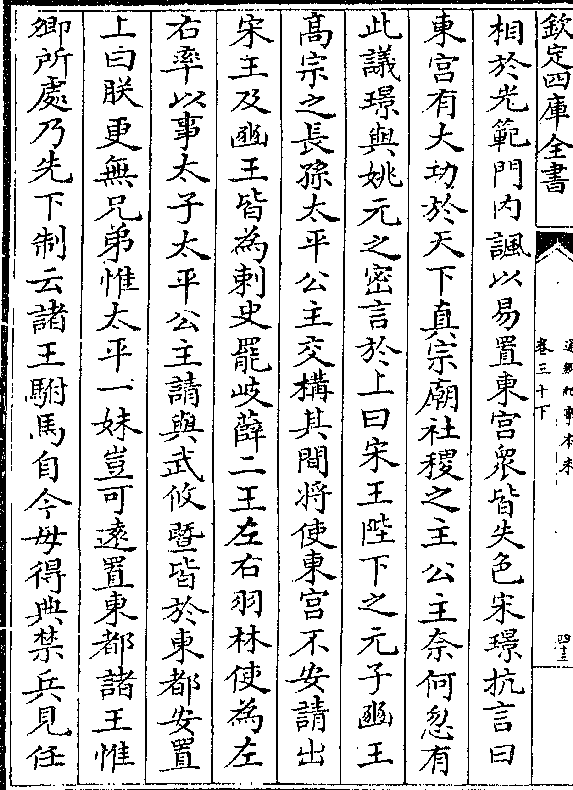 欽定四庫全書
通鑑紀事本末
卷三十下
相於光範門内諷以易置東宮衆皆失色宋璟抗言曰
東宮有大功於天下真宗廟社稷之主公主奈何忽有
此議璟與姚元之密言於上曰宋王陛下之元子豳王
髙宗之長孫太平公主交構其間將使東宮不安請出
宋王及豳王皆為刺史罷岐薛二王左右羽林使為左
右率以事太子太平公主請與武攸暨皆於東都安置
上曰朕更無兄弟惟太平一妹豈可逺置東都諸王惟
卿所處乃先下制云諸王駙馬自今毋得典禁兵見任